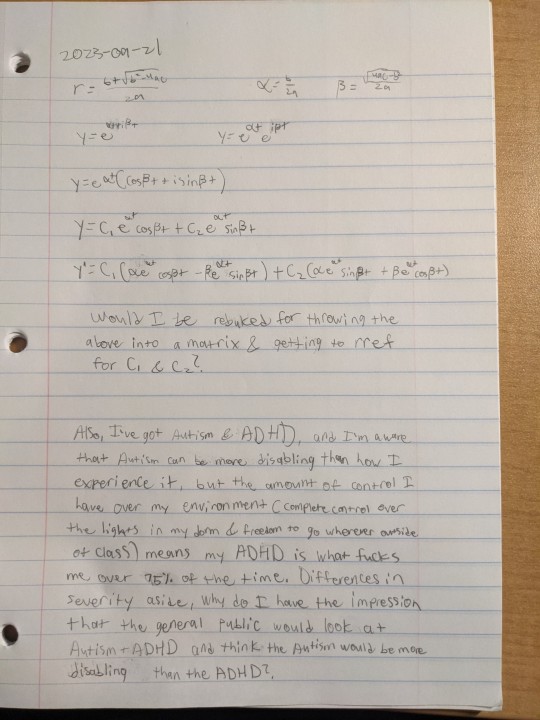 2023-09-21
r = b+√b²-4ac / 2a α = b/2a β = √4ac-b² / 2a
y = e^αt+iβt y = e^αt e^iβt
y = e^αt (cosβt + isinβt)
y = C₁ e^αt cosβt + C₂ e^αt sinβt
y' = C₁ (αe^αt cosβt - βe^αt sinβt) + C₂ (αe^αt sinβt + βe^αt cosβt)
Would I be rebuked for throwing the
above into a matrix & getting to rref
for C₁ & C₂?
Also, I've got Autism & ADHD, and I'm aware
that Autism can be more disabling than how I
experience it, but the amount of control I
have over my environment (complete control over
the lights in my dorm & freedom to go wherever outside
of class) means my ADHD is what fucks
me over 75% of the time. Differences in
severity aside, why do I have the impression
that the general public would look at
Autism + ADHD and think the Autism would be more
disabling than the ADHD?